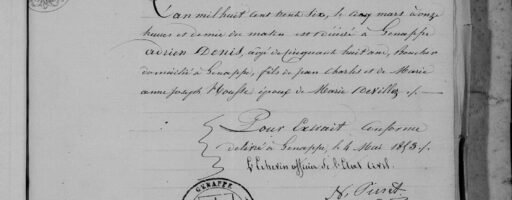 L'an mil huit cent trente six, le cinq mars à onze
heures et demie du matin est décédé à Genappe
Adrien Denis, âgé de cinquante huit ans, boucher
domicilié à Genappe, fils de Jean Charles et de Marie
anne Joseph époux de Marie Devillez ./.
Pour Extrait conforme
délivré à Genappe, le 4 Mai 1853 ./.
L'Echevin officier de l'Etat Civil.
GENAPPE